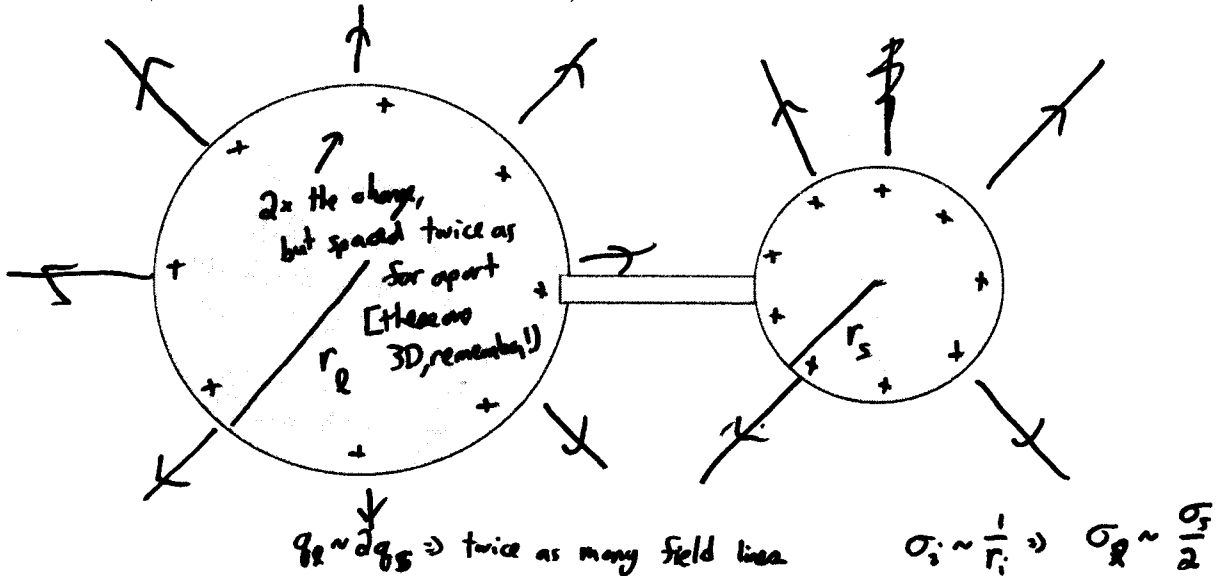 2x the charge,
but spaced twice as
far apart
[these are
3D, remember!)
r_l
r_s
q_l ~ 2q_s => twice as many field lines
σ_i ~ 1/r_i => σ_l ~ σ_s/2